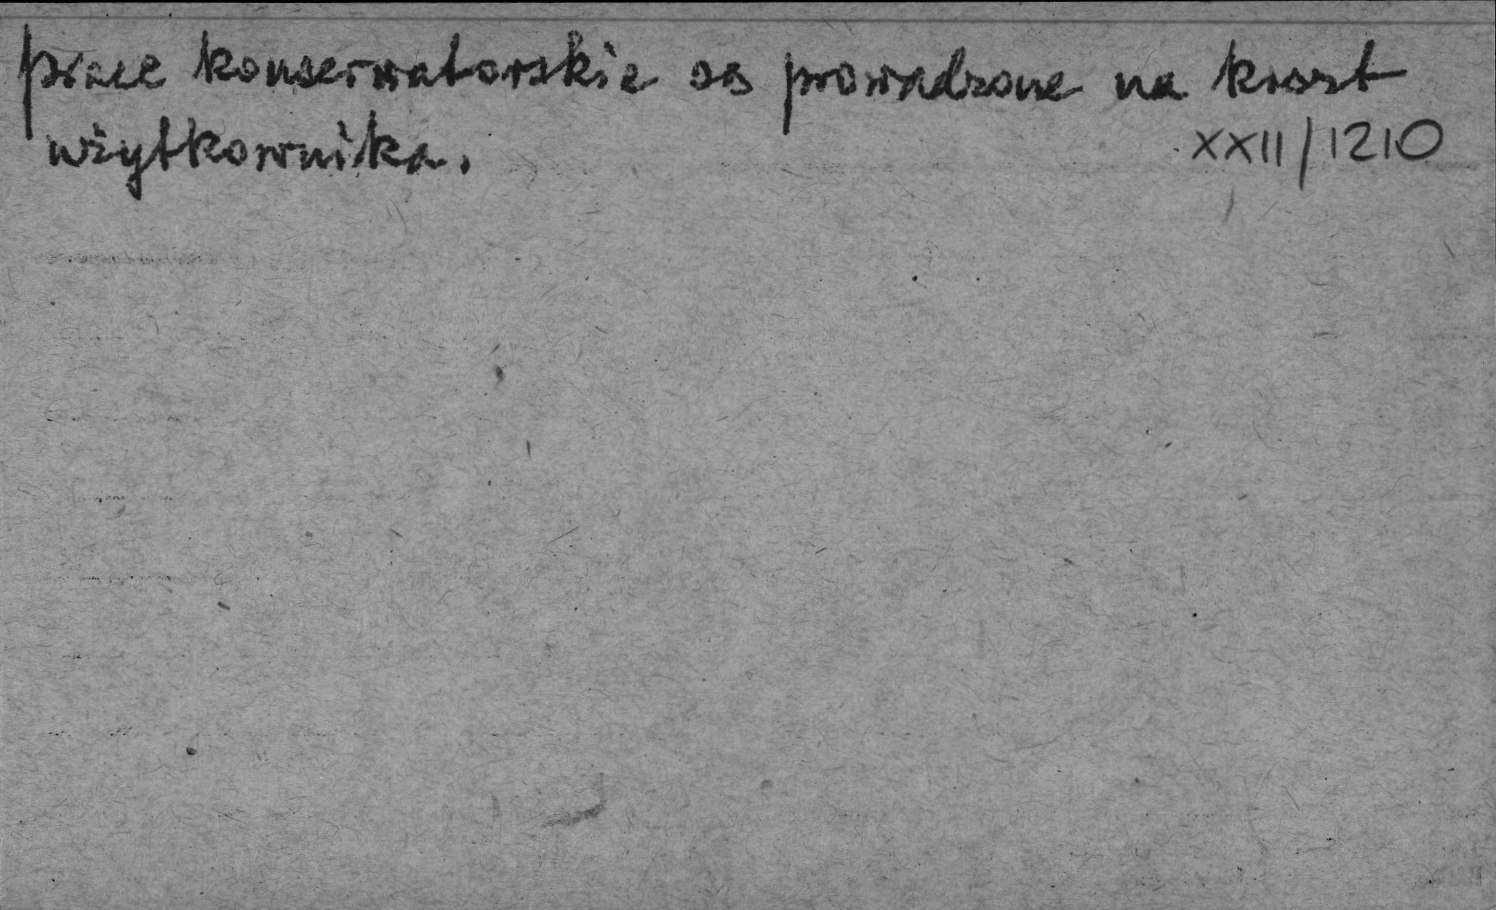 prace konserwatorskie są prowadzone na koszt
użytkownika.
XXII/1210